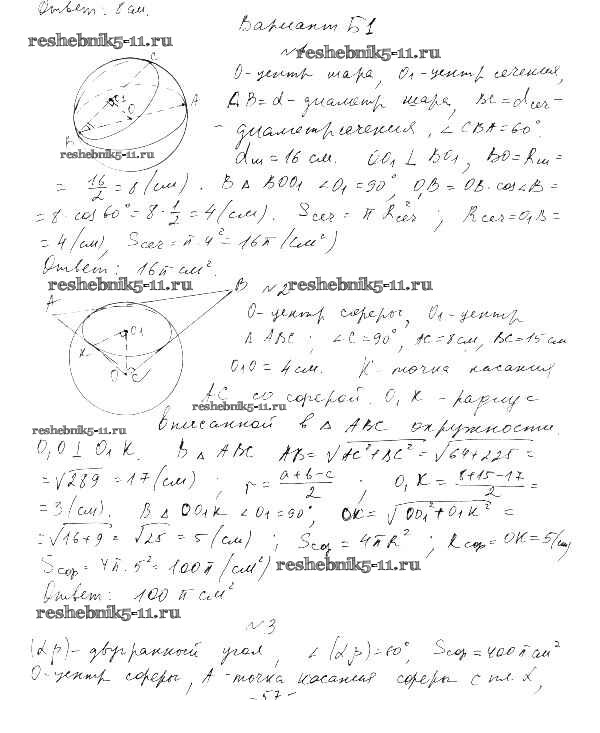 Ответ: 8 см.
Вариант Б1
reshebnik5-11.ru
№1 reshebnik5-11.ru
O-центр шара, O₁-центр сечения,
AB=d-диаметр шара, BC=dсеч-
-диаметр сечения, ∠CBA=60°.
reshebnik5-11.ru
dш=16 см. OO₁ ⊥ BO₁, BO=Rш=
= 16/2 = 8 (см). В △ BOO₁ ∠O₁=90°, O₁B= OB·cos∠B=
=8·cos 60°=8·1/2=4(см). Sсеч= πR²сеч; Rсеч=O₁B=
=4(см), Sсеч=π·4²=16π (см²)
Ответ: 16π см².
reshebnik5-11.ru №2 reshebnik5-11.ru
O-центр сферы, O₁-центр
△ ABC; ∠C=90°, AC=8см, BC=15см
O₁O=4см. K-точка касания
AC со сферой. O₁K-радиус
reshebnik5-11.ru
вписанной в △ ABC окружности.
reshebnik5-11.ru
O₁O ⊥ O₁K. В △ ABC AB=√AC²+BC²=√64+225=
=√289=17(см); r= a+b-c/2; O₁K= 8+15-17/2=
=3(см). В △ OO₁K ∠O₁=90°, OK=√OO₁²+O₁K²=
=√16+9=√25=5(см); Sсф=4πR²; Rсф=OK=5(см)
Sсф=4π·5²=100π(см²) reshebnik5-11.ru
Ответ: 100π см²
reshebnik5-11.ru
№3
(αβ)-двугранный угол, ∠(αβ)=60°, Sсф=400π см²
O-центр сферы, A-точка касания сферы с пл. α,
-57-